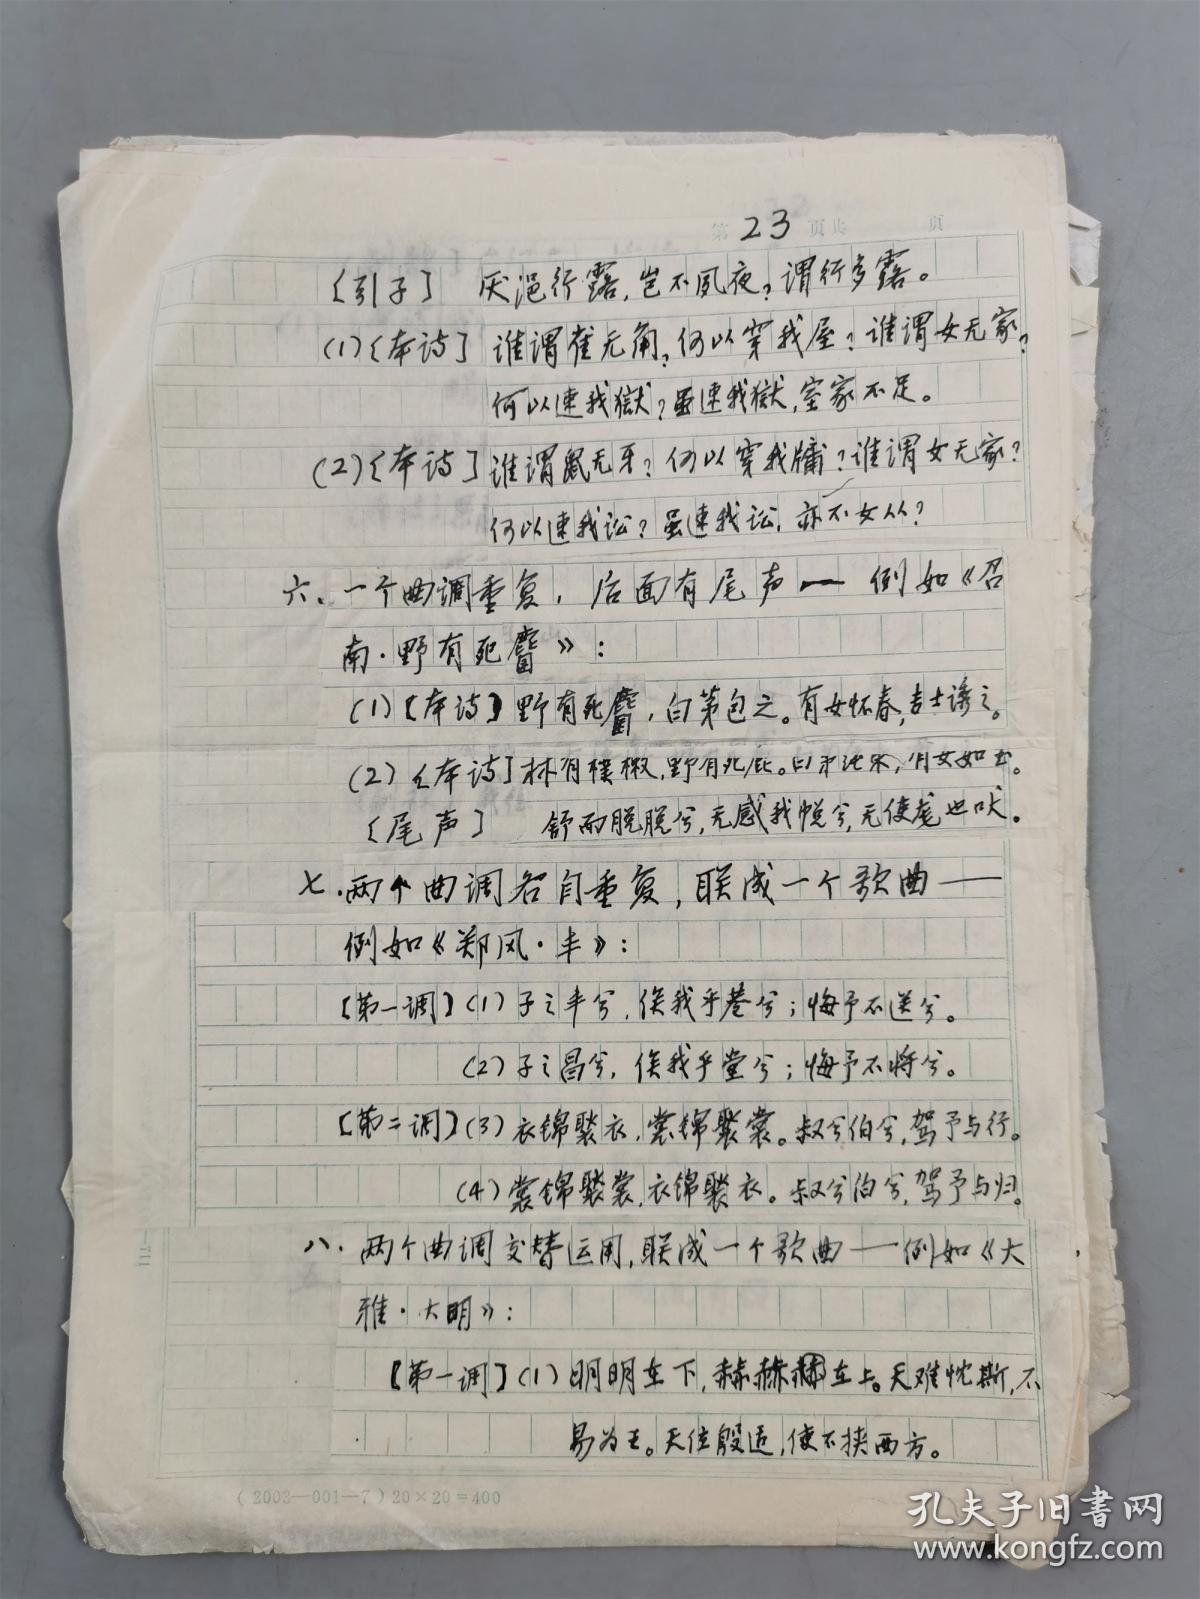 第23页共 页
〔引子〕 厌浥行露，岂不夙夜？谓行多露。
(1)〔本诗〕谁谓雀无角？何以穿我屋？谁谓女无家？
何以速我獄？虽速我獄，室家不足。
(2)〔本诗〕谁谓鼠无牙？何以穿我牗？谁谓女无家？
何以速我讼？虽速我讼，亦不女从？
六、一个曲调重复，后面有尾声——例如《召
南·野有死麕》：
(1)【本诗】野有死麕，白茅包之。有女怀春，吉士诱之。
(2)〔本诗〕林有樸樕，野有死鹿。白茅纯束，有女如玉。
〔尾声〕 舒而脱脱兮，无感我帨兮，无使尨也吠。
七.两个曲调各自重复，联成一个歌曲——
例如《郑风·丰》：
【第一调】(1)子之丰兮，俟我乎巷兮；悔予不送兮。
(2)子之昌兮，俟我乎堂兮；悔予不将兮。
【第二调】(3)衣锦褧衣，裳锦褧裳。叔兮伯兮，驾予与行。
(4)裳锦褧裳，衣锦褧衣。叔兮伯兮，驾予与归。
八.两个曲调交替运用，联成一个歌曲——例如《大
雅·大明》：
【第一调】(1)明明在下，赫赫在上。天难忱斯，不
易为王。天位殷适，使不挟西方。
(2003—001—7)20×20=400
孔夫子旧书网
www.kongfz.com